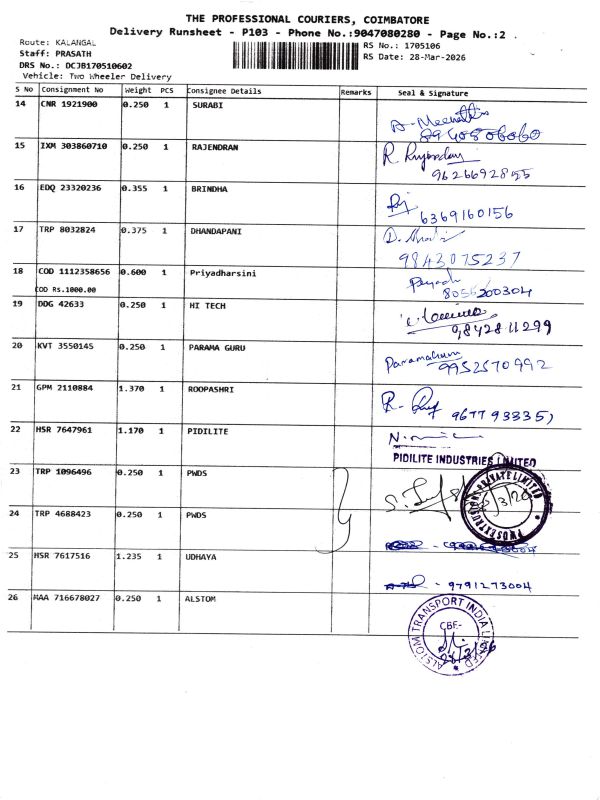 THE PROFESSIONAL COURIERS, COIMBATORE
Delivery Runsheet - P103 - Phone No.:9047080280 - Page No.:2 .
Route: KALANGAL
RS No.: 1705106
Staff: PRASATH
RS Date: 28-Mar-2026
DRS No.: DCJB170510602
Vehicle: Two Wheeler Delivery
S No Consignment No Weight PCS Consignee Details Remarks Seal & Signature
14 CNR 1921900 0.250 1 SURABI
8940806060
15 IXM 303860710 0.250 1 RAJENDRAN
9626692855
16 EDQ 23320236 0.355 1 BRINDHA
6369160156
17 TRP 8032824 0.375 1 DHANDAPANI
9843075237
18 COD 1112358656 0.600 1 Priyadharsini
COD Rs.1000.00
8056200304
19 DDG 42633 0.250 1 HI TECH
9842811299
20 KVT 3550145 0.250 1 PARAMA GURU
Paramahum
9952570992
21 GPM 2110884 1.370 1 ROOPASHRI
22 HSR 7647961 1.170 1 PIDILITE
PIDILITE INDUSTRIES LIMITED
23 TRP 1096496 0.250 1 PWDS
24 TRP 4688423 0.250 1 PWDS
25 HSR 7617516 1.235 1 UDHAYA
- 9791273004
26 MAA 716678027 0.250 1 ALSTOM
ALSTOM TRANSPORT INDIA LIMITED
CBE-